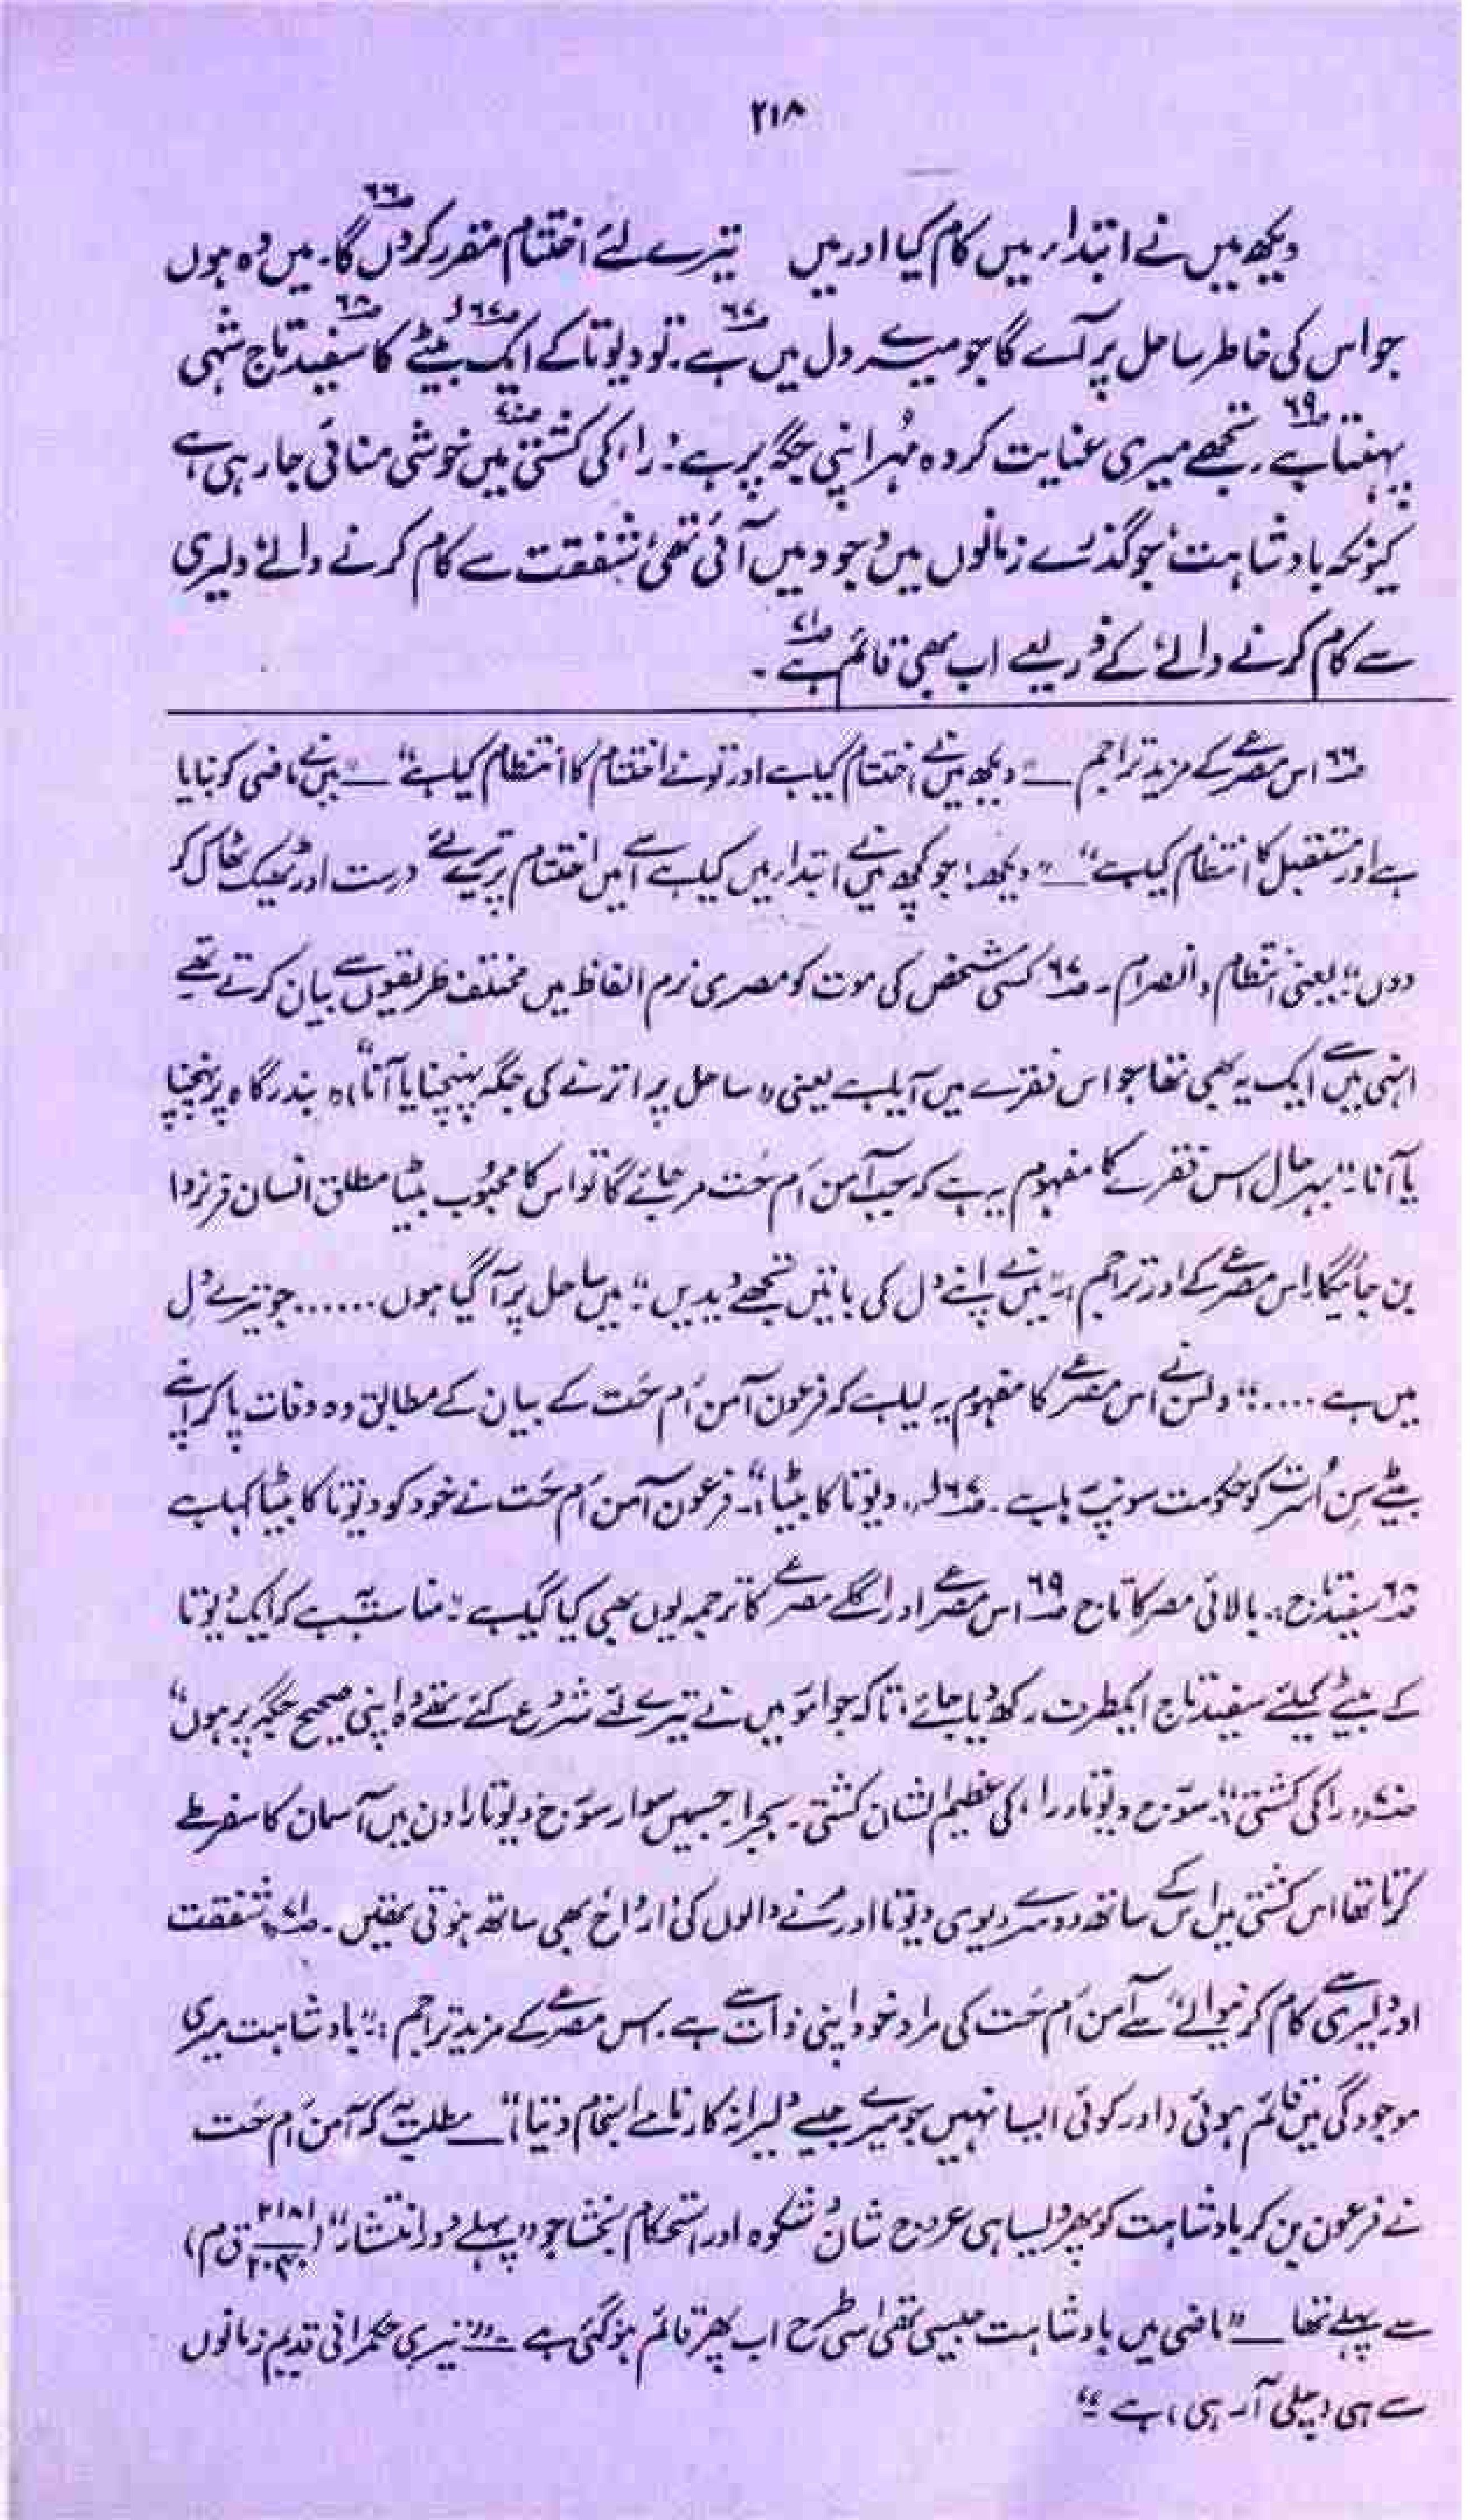 ۲۱۸
دیکھ میں نے ابتداء میں کام کیا اور میں تیرے لئے اختتام مقرر کردوں گا۔ میں وہ ہوں ۶۶
جو اس کی خاطر ساحل پر آئے گا جو میرے دل میں ہے۔ ۶۷ تو دیوتا کے ایک بیٹے ۶۷ل کا سفید تاج ۶۸ شہی
پہنتا ہے۔ ۶۹ تجھے میری عنایت کردہ مُہر اپنی جگہ پر ہے؛ 'را' کی کشتی ۷۰ میں خوشی منائی جا رہی ہے
کیونکہ بادشاہت' جو گذرے زمانوں میں وجود میں آئی تھی' شفقت سے کام کرنے والے' دلیری
سے کام کرنے والے' کے ذریعے اب بھی قائم ہے۔ ۷۱
۶۶ اس مصرعے کے مزید تراجم — "دیکھ میں نے اختتام کیا ہے اور تو نے اختتام کا انتظام کیا ہے" — "میں نے ماضی کو بنایا
ہے اور مستقبل کا انتظام کیا ہے" — "دیکھ! جو کچھ میں نے ابتداء میں کیا ہے اسے میں اختتام پر تیرے لئے درست اور ٹھیک ٹھاک کر
دوں" یعنی انتظام و انصرام۔ ۶۷ کسی شخص کی موت کو مصری نرم الفاظ میں مختلف طریقوں سے بیان کرتے تھے
انہی میں سے ایک یہ بھی تھا جو اس فقرے میں آیا ہے یعنی "ساحل پر اترنے کی جگہ پہنچنا یا آنا"، "بندرگاہ پر پہنچنا
یا آنا"۔ بہرحال اس فقرے کا مفہوم یہ ہے کہ جب آمن اَم حَت مر جائے گا تو اس کا محبُوب بیٹا مطلق انسان فرنروا
بن جائیگا۔ اس مصرعے کے اور تراجم :۔ "میں نے اپنے دل کی باتیں تجھے دیدیں" "میں ساحل پر آ گیا ہوں ...... جو تیرے دل
میں ہے ....." ولسن نے اس مصرعے کا مفہوم یہ لیا ہے کہ فرعون آمن اَم حَت کے بیان کے مطابق وہ وفات پا کر اپنے
بیٹے سِن اُسرت کو حکومت سونپ رہا ہے۔ ۶۷ل "دیوتا کا بیٹا"۔ فرعون آمن اَم حَت نے خود کو دیوتا کا بیٹا کہا ہے
۶۸ سفید تاج :۔ بالائی مصر کا تاج ۶۹ اس مصرعے اور اگلے مصرعے کا ترجمہ یوں بھی کیا گیا ہے "مناسب یہ ہے کہ ایک دیوتا
کے بیٹے کیلئے سفید تاج ایکطرف رکھ دیا جائے، تاکہ جو امور میں نے تیرے لئے شروع کئے تھے وہ اپنی صحیح جگہ پر ہوں"
۷۰ "را کی کشتی":۔ سورج دیوتا 'را' کی عظیم الشان کشتی۔ بجرا۔ جسمیں سوار سورج دیوتا را دن میں آسمان کا سفر طے
کرتا تھا اس کشتی میں اس کے ساتھ دوسرے دیوی دیوتا اور مرنے والوں کی ارواح بھی ساتھ ہوتی تھیں۔ ۷۱ "شفقت
اور دلیری سے کام کرنیوالے" سے آمن اَم حَت کی مراد خود اپنی ذات سے ہے۔ اس مصرعے کے مزید تراجم :۔ "بادشاہت میری
موجودگی میں قائم ہوئی (اور کوئی ایسا نہیں جو میرے جیسے دلیرانہ کارنامے انجام دیتا)" — مطلب یہ کہ آمن اَم حَت
نے فرعون بن کر بادشاہت کو پھر ویسا ہی عروج شان و شکوہ اور استحکام بخشا جو "پہلے دور انتشار" (۲۱۸۱ / ۲۰۴۰ ق م)
سے پہلے تھا — "ماضی میں بادشاہت جیسی تھی اسی طرح اب پھر قائم ہو گئی ہے — "تیری حکمرانی قدیم زمانوں
سے ہی (چلی آ رہی) ہے"